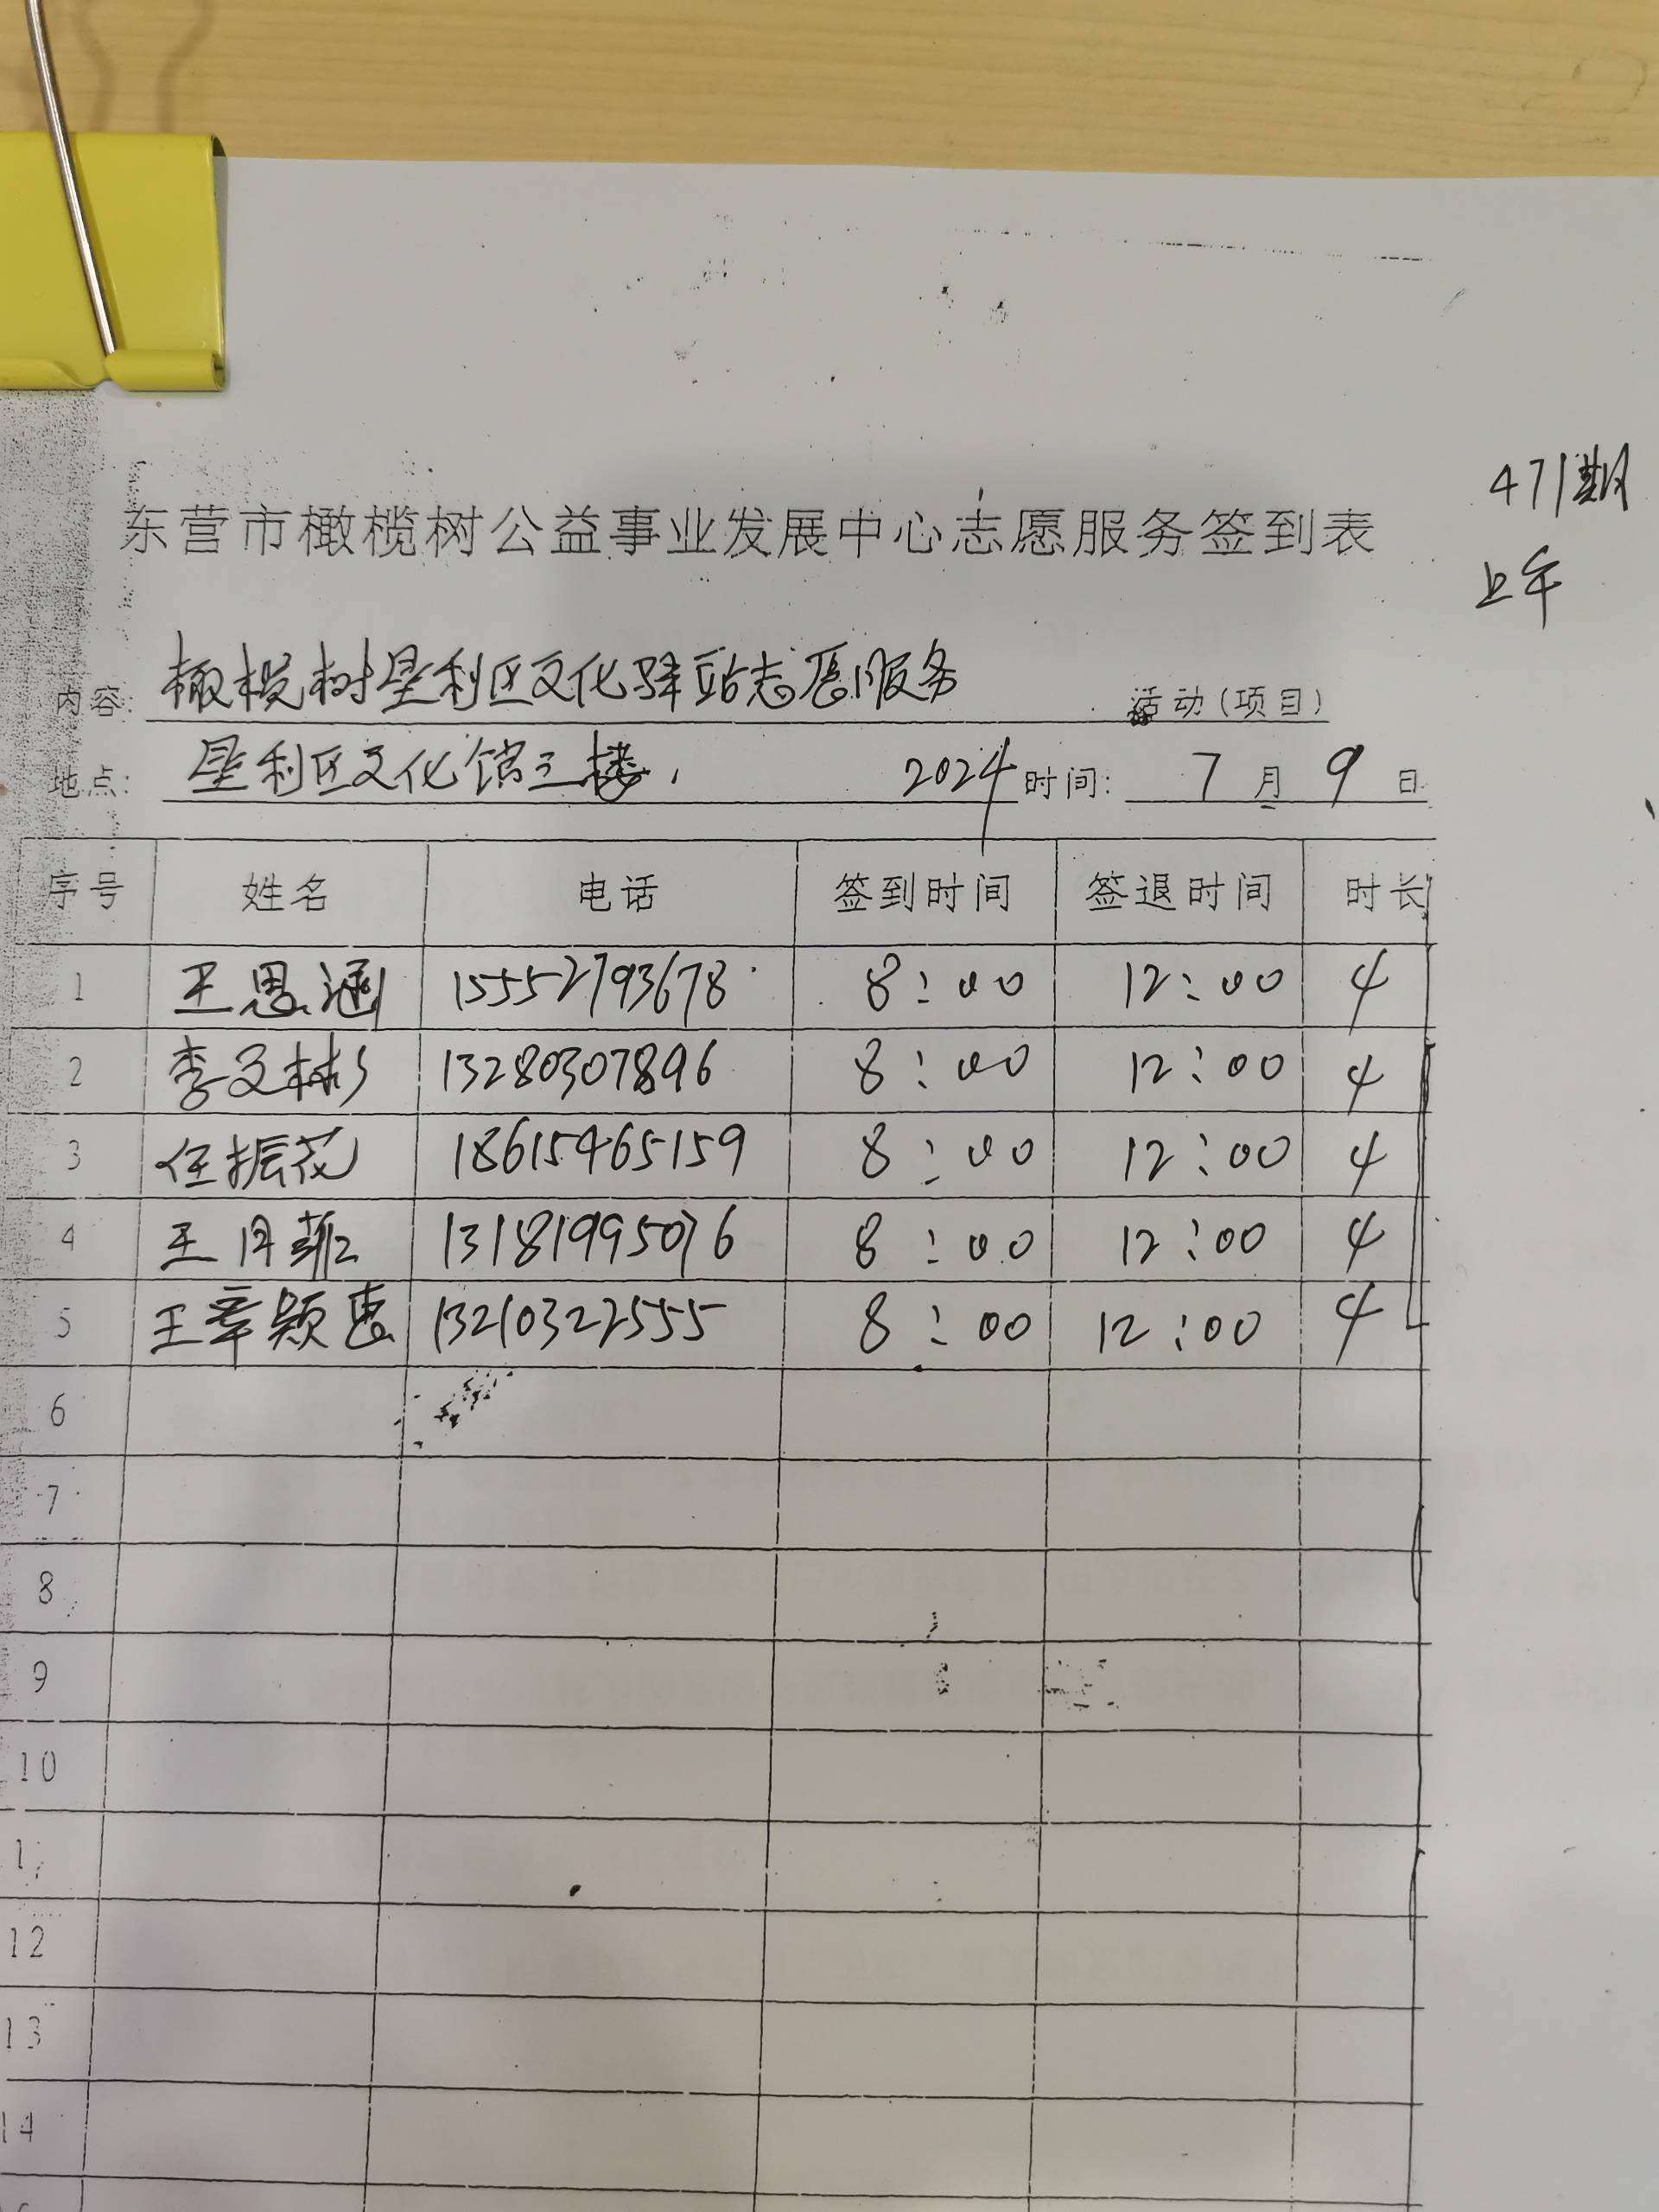 471期
东营市橄榄树公益事业发展中心志愿服务签到表
上午
内容: 橄榄树垦利区文化驿站志愿服务 活动(项目)
地点: 垦利区文化馆三楼. 2024 时间: 7 月 9 日
序号 姓名 电话 签到时间 签退时间 时长
1 王思涵 15552793678 8:00 12:00 4
2 李文彬 13280307896 8:00 12:00 4
3 任振花 18615465159 8:00 12:00 4
4 王月菲 13181995076 8:00 12:00 4
5 王章颖惠 13210322555 8:00 12:00 4
6
7
8
9
10
12
13
14